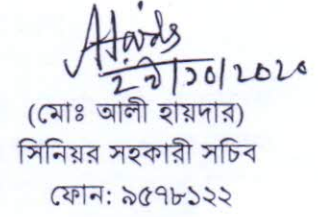 ২৭/১০/২০২০
(মোঃ আলী হায়দার)
সিনিয়র সহকারী সচিব
ফোন: ৯৫৭৮১২২